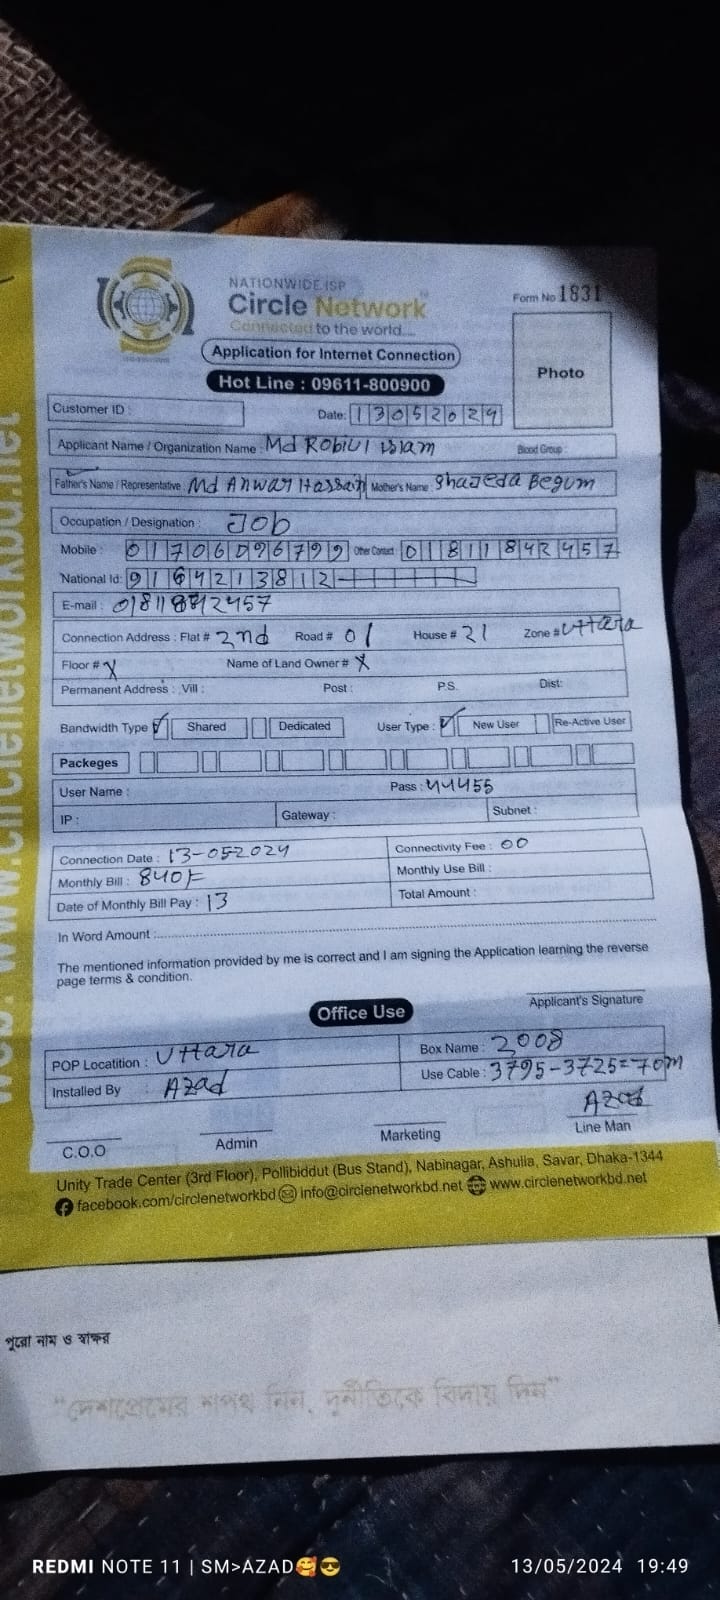 NATIONWIDE ISP
Circle Network
Connected to the world....
Form No 1831
Application for Internet Connection
Hot Line : 09611-800900
Photo
Customer ID :
Date: 13052024
Applicant Name / Organization Name : Md Robiul islam Blood Group :
Father's Name / Representative : Md Anwar Hossain Mother's Name : Shajeda Begum
Occupation / Designation : Job
Mobile : 01706096799 Other Contact 01811842457
National Id: 9164213812
E-mail : 01811842457
Connection Address : Flat # 2nd Road # 01 House # 21 Zone # Uttara
Floor # X Name of Land Owner # X
Permanent Address : Vill : Post : P.S. Dist:
Bandwidth Type Shared Dedicated User Type : New User Re-Active User
Packeges
User Name : Pass : 44455
IP : Gateway : Subnet :
Connection Date : 13-052024 Connectivity Fee : 00
Monthly Bill : 840/= Monthly Use Bill :
Date of Monthly Bill Pay : 13 Total Amount :
In Word Amount :
The mentioned information provided by me is correct and I am signing the Application learning the reverse
page terms & condition.
Applicant's Signature
Office Use
POP Locatition : Uttara Box Name : 2008
Installed By : Azad Use Cable : 3795-3725=70m
Azad
C.O.O Admin Marketing Line Man
Unity Trade Center (3rd Floor), Pollibiddut (Bus Stand), Nabinagar, Ashulia, Savar, Dhaka-1344
facebook.com/circlenetworkbd info@circlenetworkbd.net www.circlenetworkbd.net
web: www.circlenetworkbd.net
পুরো নাম ও স্বাক্ষর
"দেশপ্রেমের শপথ নিন, দুর্নীতিকে বিদায় দিন"
REDMI NOTE 11 | SM>AZAD🥰😎 13/05/2024 19:49